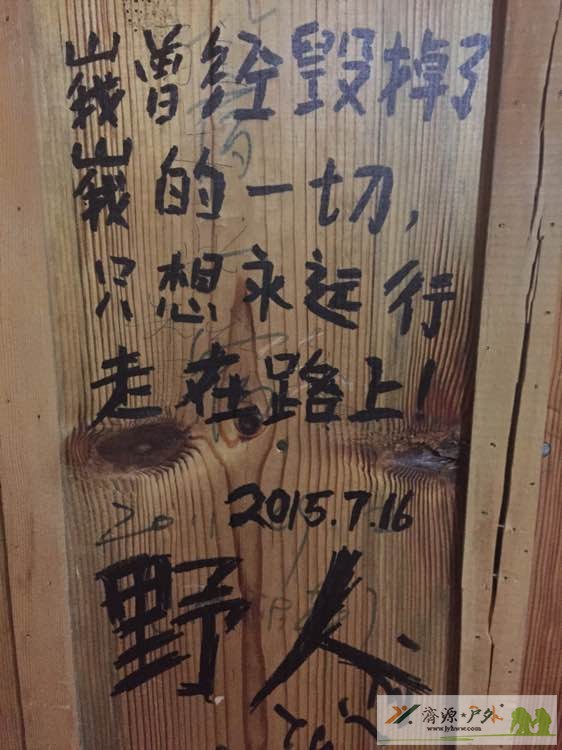 峩曾经毁掉了
峩的一切,
只想永远行
走在路上!
2015.7.16
野人
濟源★户外
www.jyhww.com